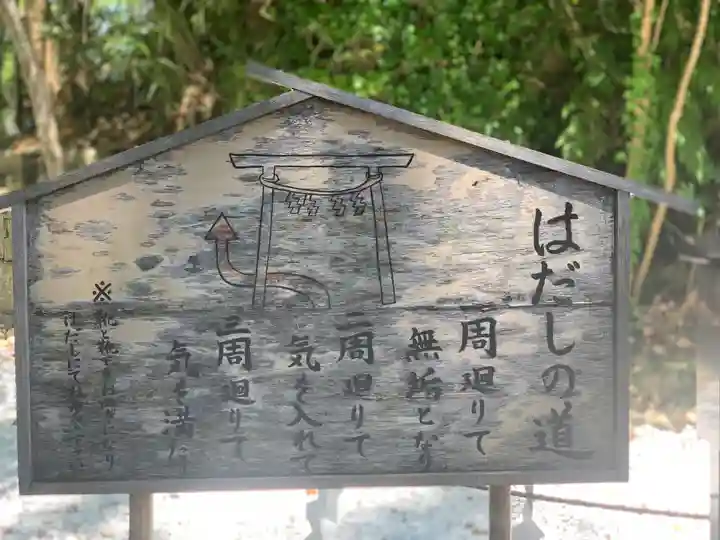 はだしの道
一周廻りて
無垢となり
二周廻りて
気を入れて
三周廻りて
気を満た
※靴と靴下をおぬぎになり
はだしにて